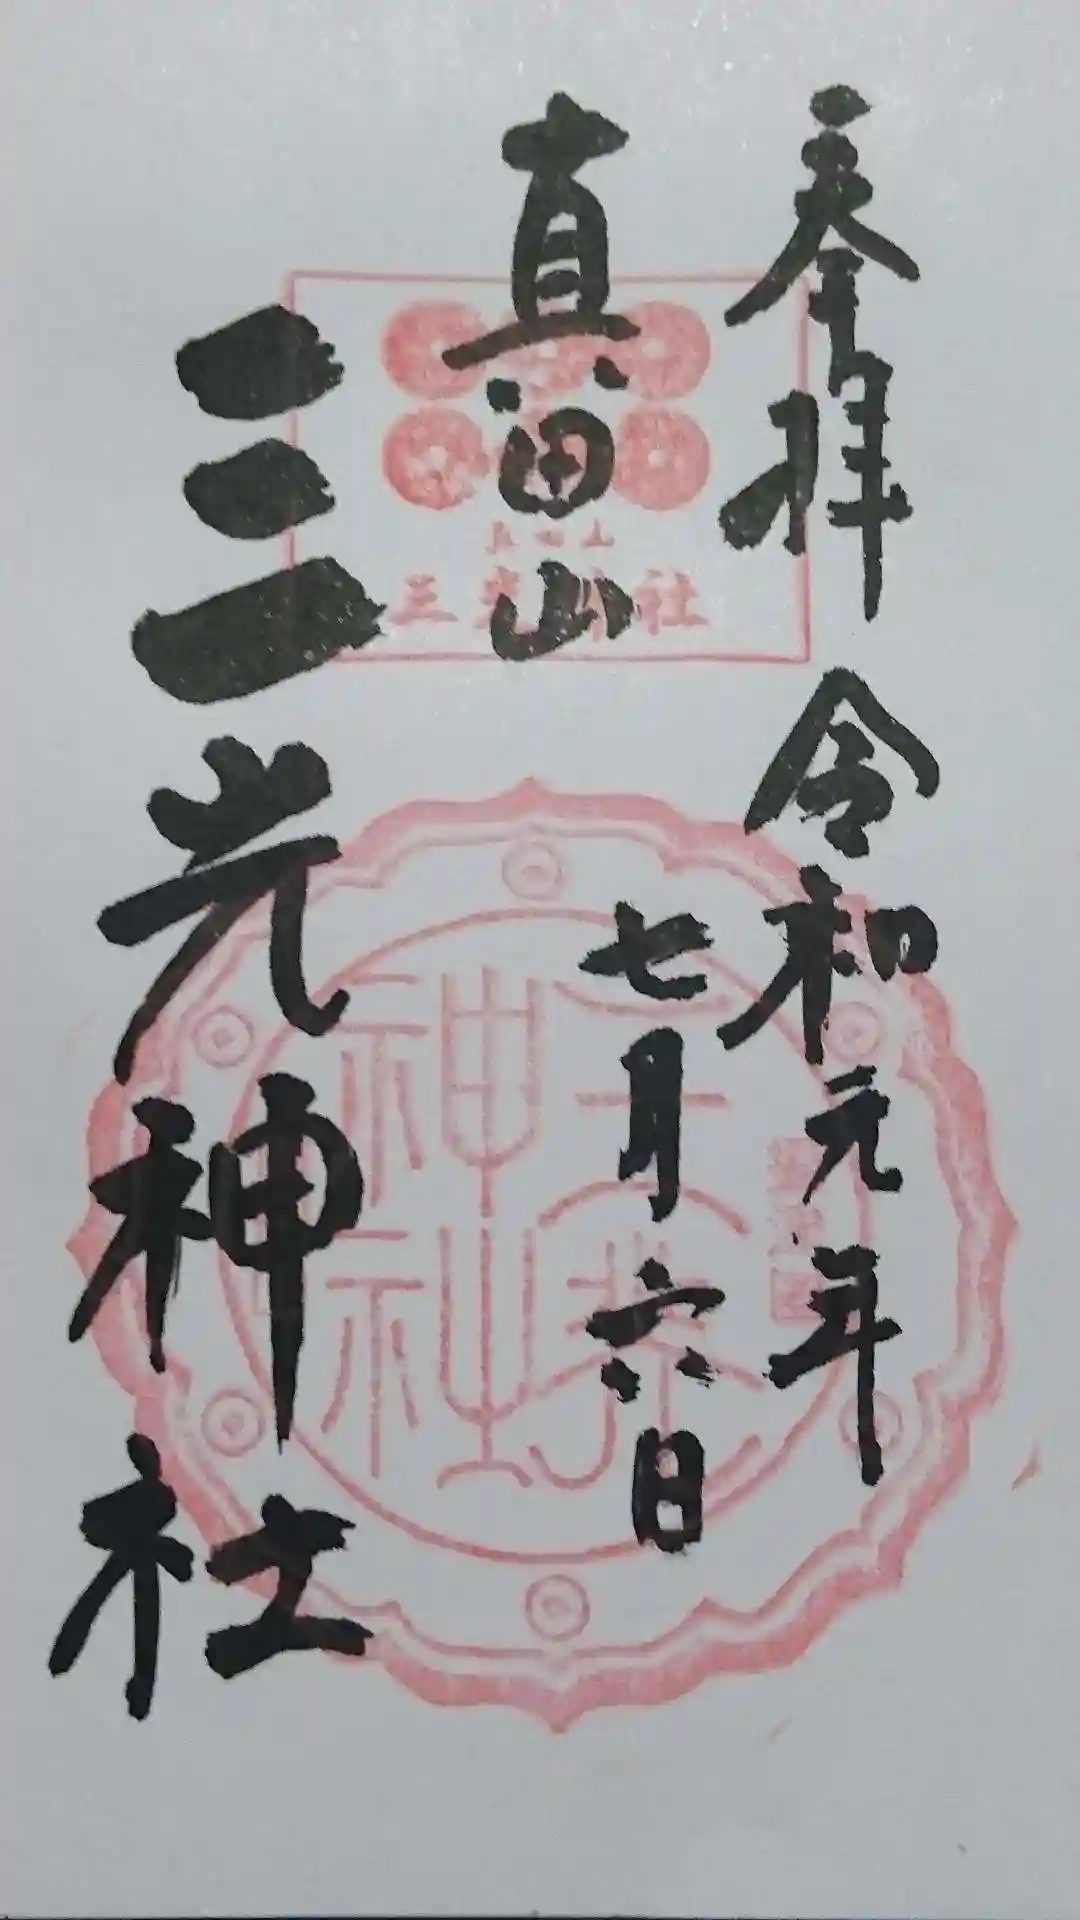 奉拝
令和元年
七月六日
真田山
三光神社
真田山
三光神社
三光神社